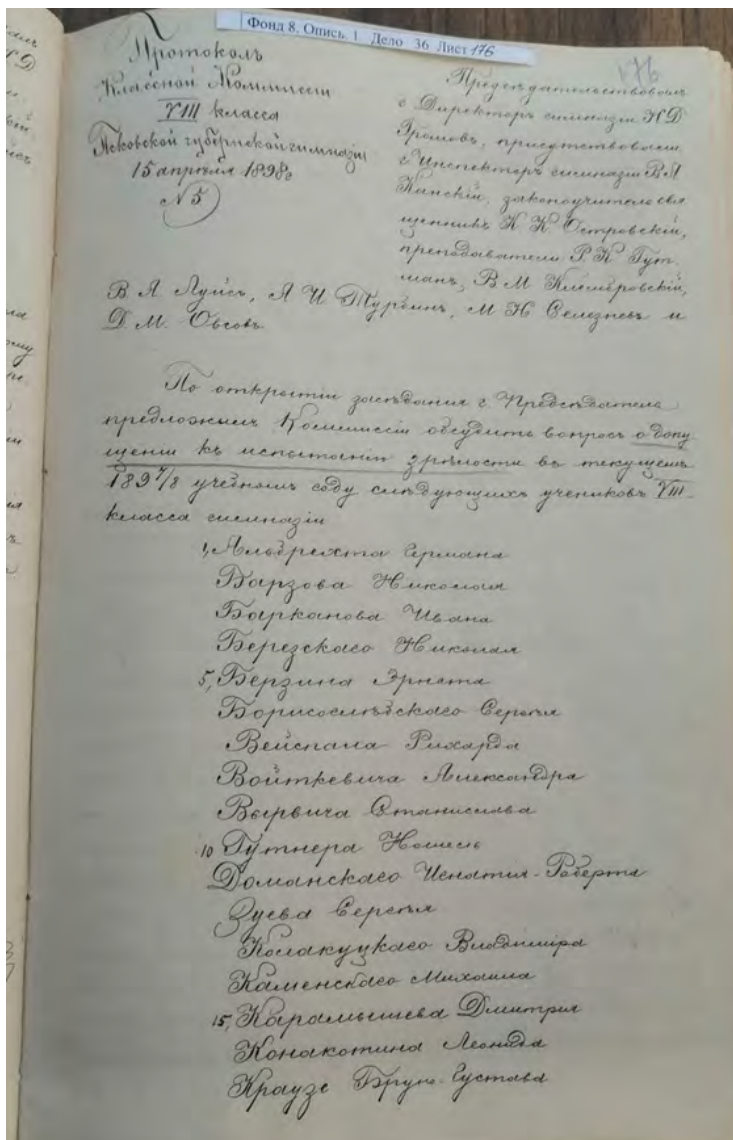 Фонд 8, Опись. 1 Дело 36 Лист 176
176
Протоколъ
Классной Коммиссіи
VIII класса
Псковской губернской гимназіи
15 апрѣля 1898г
№ 5
Предсѣдательствовалъ
г. Директоръ гимназіи Н Д
Громовъ, присутствовали
г. Инспекторъ гимназіи В Я
законоучитель свя
щенникъ К К Островскій,
преподаватели: Р. К Гут
манъ, В М
В Я Луйсъ, А И Турбинъ, М Н Селезневъ и
Д. М. Овсовъ
По открытіи засѣданія г. Предсѣдатель
предложилъ Коммиссіи обсудить вопросъ о допу
щеніи къ испытанію зрѣлости въ текущемъ
1897/8 учебномъ году слѣдующихъ учениковъ VIII
класса гимназіи
1, Альбрехта Германа
Барзова Николая
Барканова Ивана
Березскаго Николая
5, Берзина Эрнста
Борисоглѣбскаго Сергѣя
Рихарда
Войткевича Александра
Вырвича Станислава
10 Гутнера
Доманскаго Игнатія-Роберта
Зуева Сергѣя
Владиміра
Каменскаго Михаила
15, Карамышева Дмитрія
Конакотина Леонида
Краузе Бруно-Густава